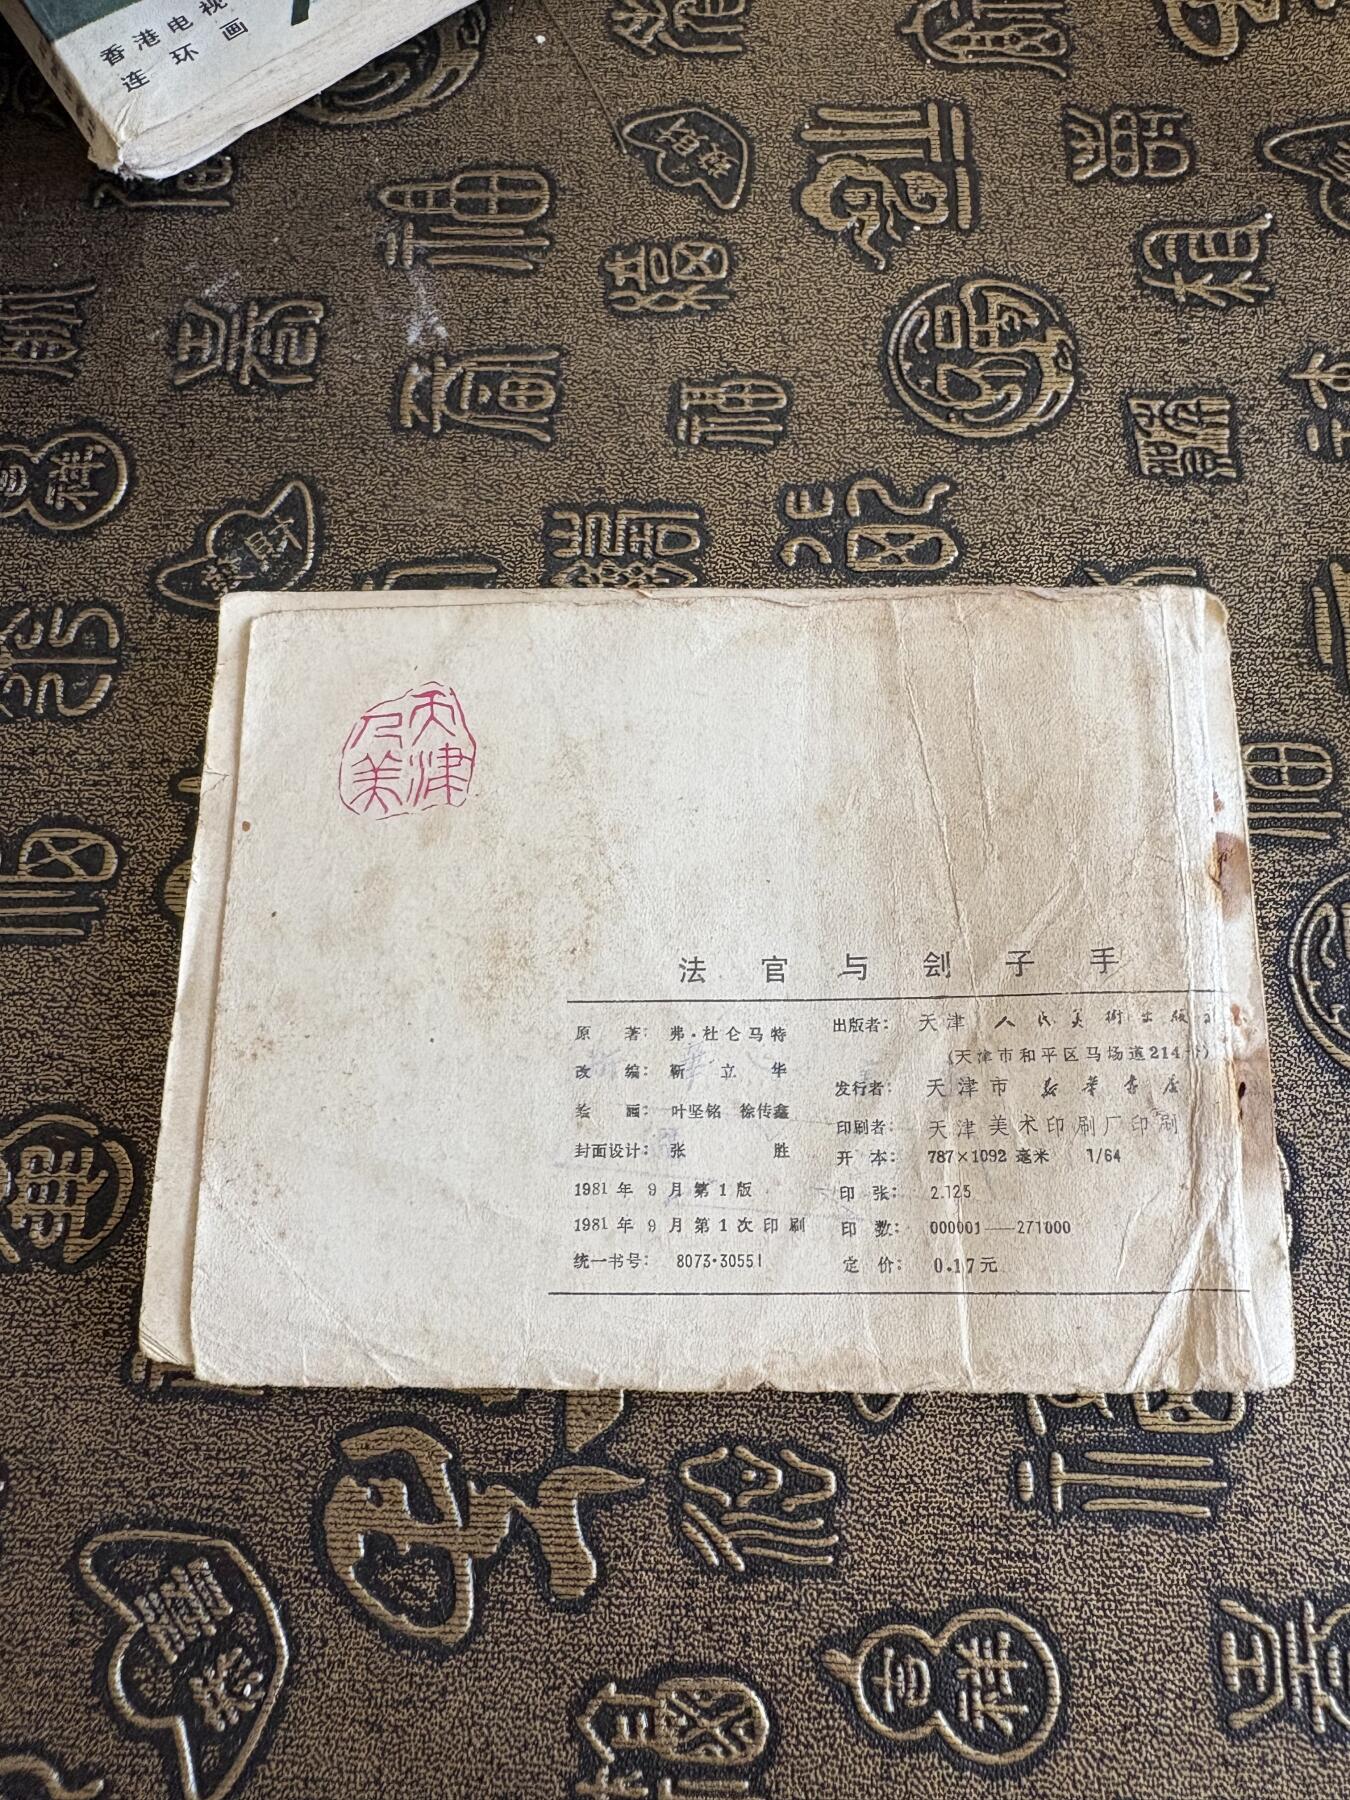 香港电视
连环画
天津
人美
法官与刽子手
原著：弗·杜仑马特
改编：靳立华
绘画：叶坚铭 徐传鑫
封面设计：张胜
1981年9月第1版
1981年9月第1次印刷
统一书号：8073·30551
出版者：天津人民美术出版
(天津市和平区马场道214号)
发行者：天津市新华书店
印刷者：天津美术印刷厂印刷
开本：787×1092毫米 1/64
印张：2.125
印数：000001——271000
定价：0.17元